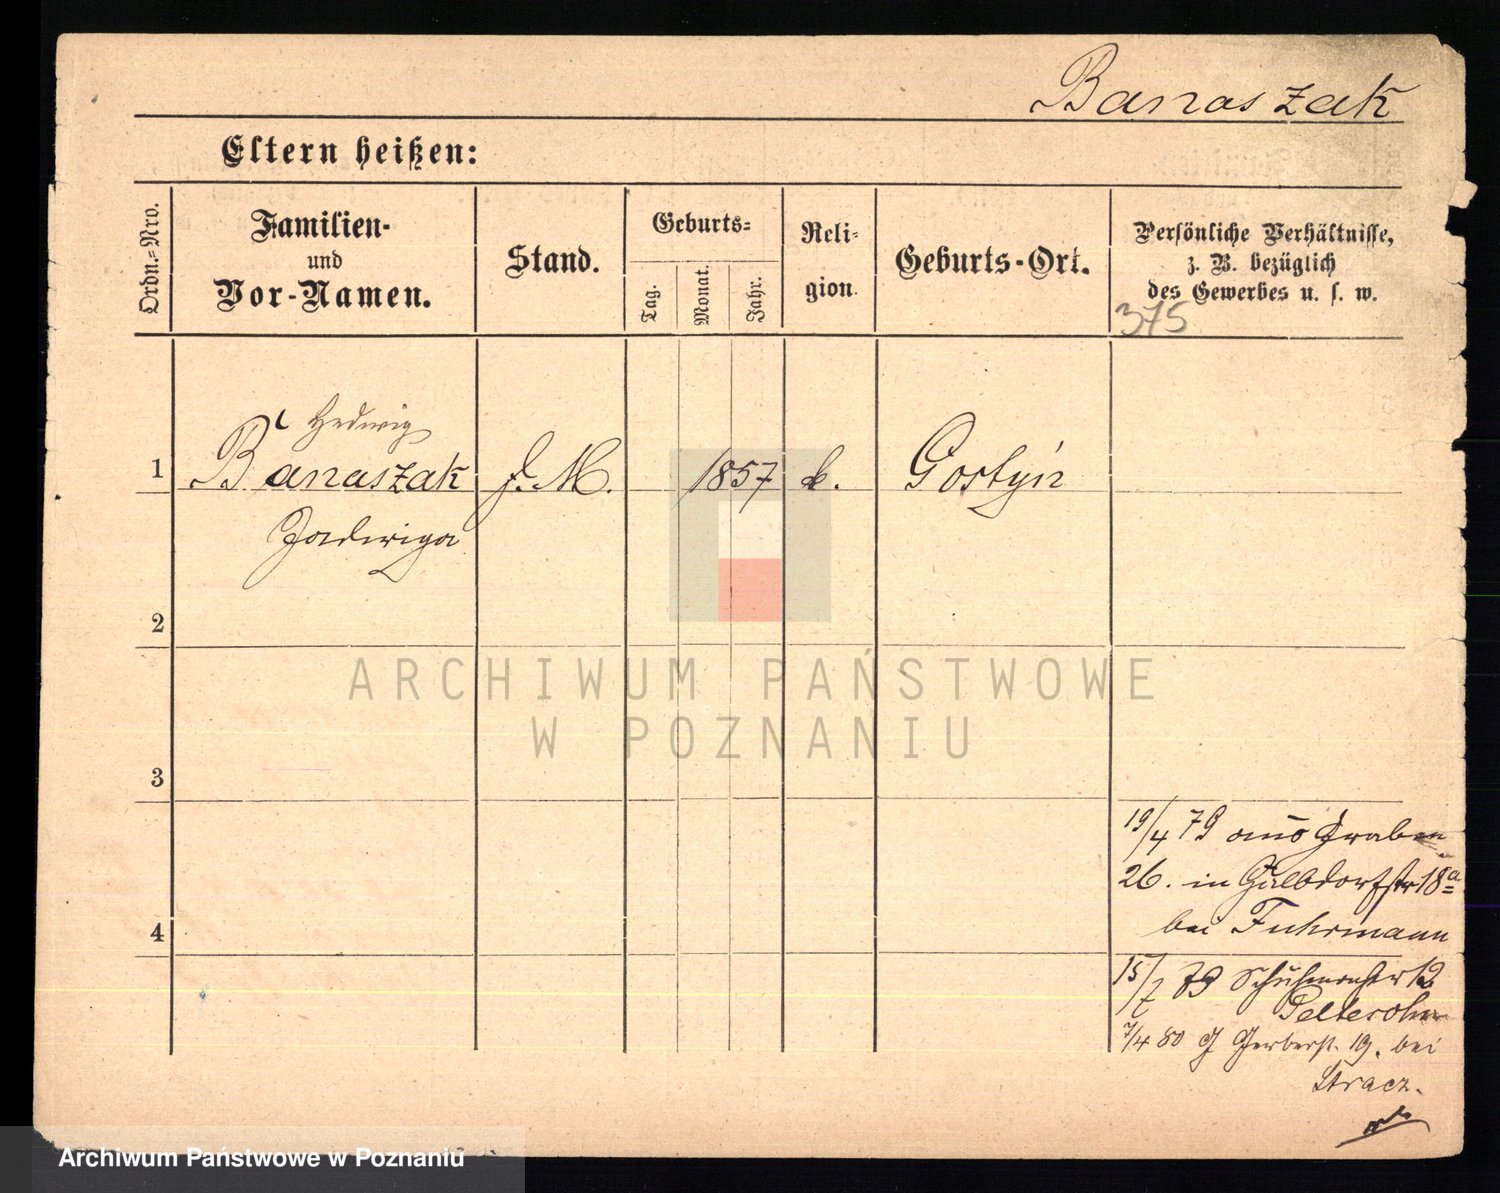 Banaszak
Eltern heißen:
Ordn.-Nro.
Familien-
und
Vor-Namen.
Stand.
Geburts-
Tag.
Monat.
Jahr.
Reli-
gion.
Geburts-Ort.
Persönliche Verhältnisse,
z. B. bezüglich
des Gewerbes u. s. w.
375
Hedwig
1 Banaszak d. M. 1857 k. Gostyń
Jadwiga
2
3
19/4 79 aus Graben
26. in Halbdorfstr 18a
4 bei Fuhrmann
15/7 79 Schuhmacherstr 12
Peltesohn
7/4 80 Gerberst. 19. bei
Stracz.
ARCHIWUM PAŃSTWOWE
W POZNANIU
Archiwum Państwowe w Poznaniu